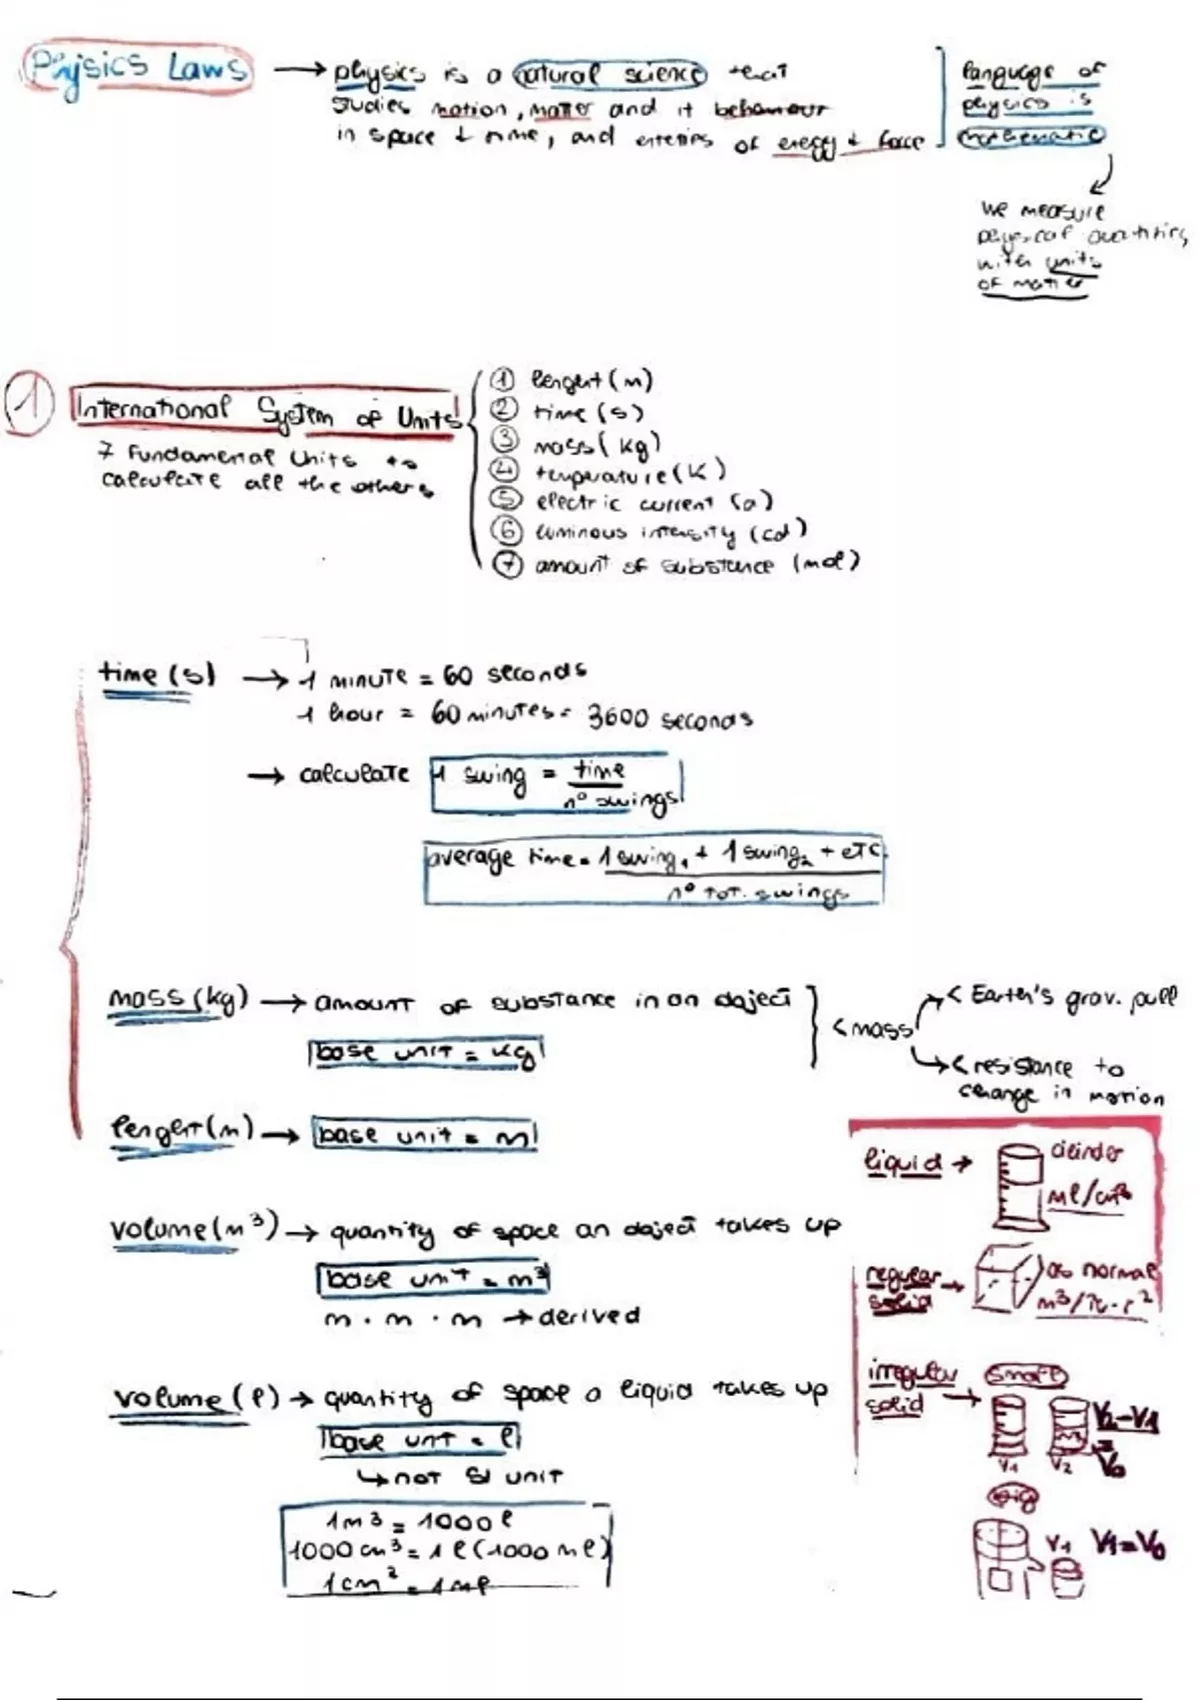 Physics Laws → physics is a natural science that
studies motion, matter and it behaviour
in space + time, and of energy + force
language of
physics is
mathematic
We measure
physical quantities
with units
of matter
1 International System of Units
7 Fundamental Units to
calculate all the others
1 lenght (m)
2 time (s)
3 mass (kg)
4 temperature (K)
5 electric current (a)
6 luminous intensity (cd)
7 amount of substance (mol)
time (s) → 1 minute = 60 seconds
1 hour = 60 minutes = 3600 seconds
→ calculate 1 swing = time
n° swings
average time = 1 swing₁ + 1 swing₂ + etc.
n° tot. swings
mass (kg) → amount of substance in an object
base unit = kg
< mass
< Earth's grav. pull
< resistance to
change in motion
lenght (m) → base unit = m
volume (m³) → quantity of space an object takes up
base unit = m³
m · m · m → derived
volume (l) → quantity of space a liquid takes up
base unit = l
↳ not SI unit
1m³ = 1000 l
1000 cm³ = 1 l (1000 ml)
1 cm² = 1 ml
liquid → cilinder
ml/cm³
regular
solid → as normal
m³/π·r²
irregular
solid → small
V₁ V₂ V₂-V₁
= V₀
big
V₁ V₁=V₀